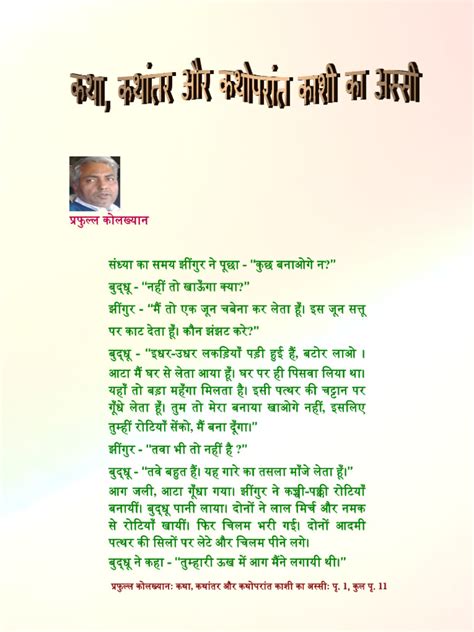 कथा, कथांतर और कथोपरांत काशी का अस्सी
प्रफुल्ल कोलख्यान
संध्या का समय झींगुर ने पूछा - "कुछ बनाओगे न?"
बुद्धू - "नहीं तो खाऊँगा क्या?"
झींगुर - "मैं तो एक जून चबेना कर लेता हूँ। इस जून सत्तू
पर काट देता हूँ। कौन झंझट करे?"
बुद्धू - "इधर-उधर लकड़ियाँ पड़ी हुई हैं, बटोर लाओ ।
आटा मैं घर से लेता आया हूँ। घर पर ही पिसवा लिया था।
यहाँ तो बड़ा महँगा मिलता है। इसी पत्थर की चट्टान पर
गूँधे लेता हूँ। तुम तो मेरा बनाया खाओगे नहीं, इसलिए
तुम्हीं रोटियाँ सेंको, मैं बना दूँगा।"
झींगुर - "तवा भी तो नहीं है ?"
बुद्धू - "तवे बहुत हैं। यह गारे का तसला माँजे लेता हूँ।"
आग जली, आटा गूँधा गया। झींगुर ने कच्ची-पक्की रोटियाँ
बनायीं। बुद्धू पानी लाया। दोनों ने लाल मिर्च और नमक
से रोटियाँ खायीं। फिर चिलम भरी गई। दोनों आदमी
पत्थर की सिलों पर लेटे और चिलम पीने लगे।
बुद्धू ने कहा - "तुम्हारी ऊख में आग मैंने लगायी थी।"
प्रफुल्ल कोलख्यान: कथा, कथांतर और कथोपरांत काशी का अस्सी: पृ. 1, कुल पृ. 11